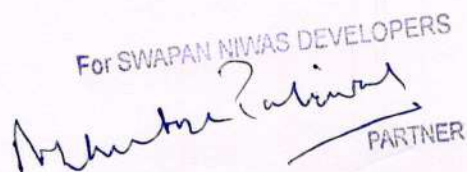 For SWAPAN NIWAS DEVELOPERS
PARTNER